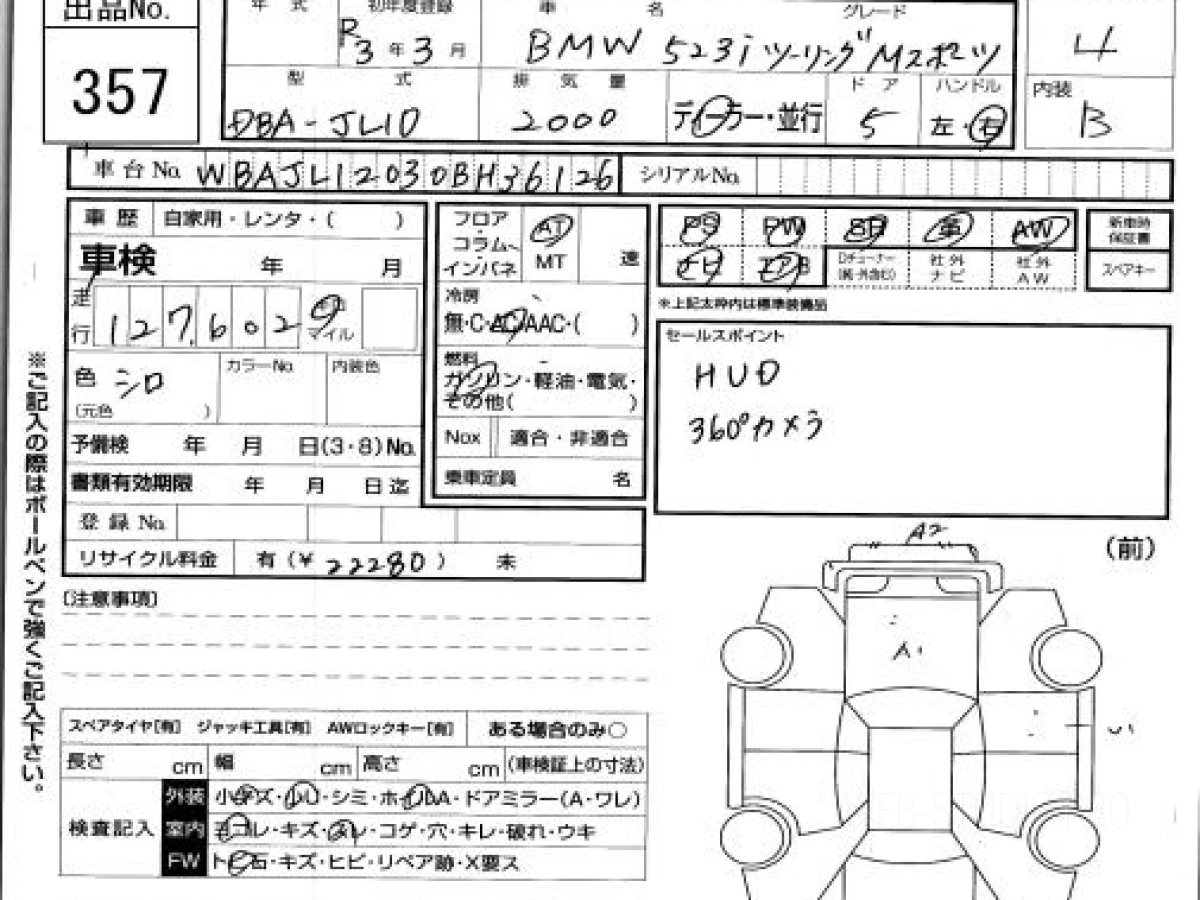 出品No.
357
年 式 初年度登録 車 名 グレード
R3年3月 BMW 523iツーリングMスポーツ 4
型 式 排 気 量 ド ア ハンドル 内装
DBA-JL10 2000 ディーラー・並行 5 左・右 B
車台No. WBAJL12030BH36126 シリアルNo.
車 歴 自家用・レンタ・( )
車検 年 月
走行 127,602 マイル
色 シロ カラーNo. 内装色
(元色 )
予備検 年 月 日(3・8)No.
書類有効期限 年 月 日迄
登 録 No.
リサイクル料金 有(¥22280) 未
フロア・コラム・インパネ AT MT 速
冷房
無・C・AC・AAC・( )
燃料
ガソリン・軽油・電気・
その他( )
Nox 適合・非適合
乗車定員 名
PS PW SR 革 AW
ナビ エアB 社外ナビ 社外AW
新車時保証書
スペアキー
※上記太枠内は標準装備品
セールスポイント
HUD
360°カメラ
※ご記入の際はボールペンで強くご記入下さい。
[注意事項]
A2
(前)
A1
スペアタイヤ[有] ジャッキ工具[有] AWロックキー[有] ある場合のみ○
長さ cm 幅 cm 高さ cm (車検証上の寸法)
検査記入
外装 小キズ・シミ・ドアミラー(A・ワレ)
室内 ヨゴレ・キズ・スレ・コゲ・穴・キレ・破れ・ウキ
FW トビ石・キズ・ヒビ・リペア跡・X要ス